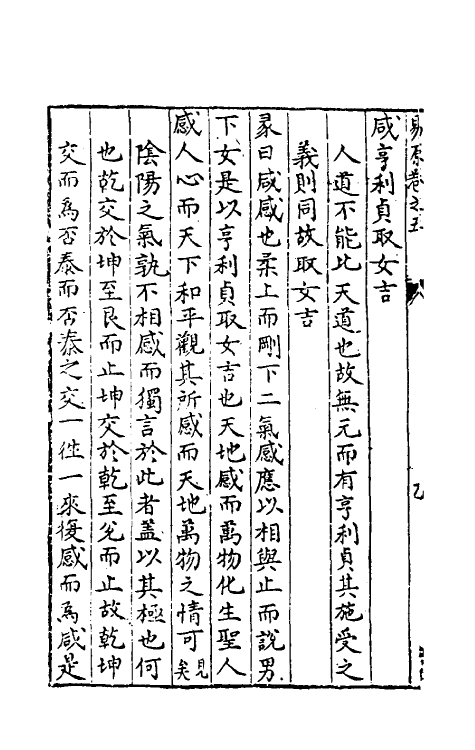 易原卷之五
咸亨利貞取女吉
人道不能比天道也故無元而有亨利貞其施受之
義則同故取女吉
彖曰咸感也柔上而剛下二氣感應以相與止而說男
下女是以亨利貞取女吉也天地感而萬物化生聖人
感人心而天下和平觀其所感而天地萬物之情可見矣
陰陽之氣孰不相感而獨言於此者蓋以其極也何
也乾交於坤至艮而止坤交於乾至兌而止故乾坤
交而為否泰而否泰之交一徃一來復感而為咸是